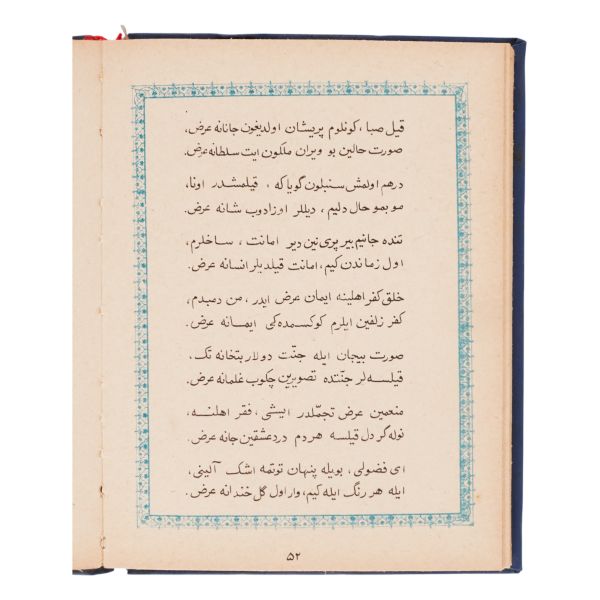 قیل صبا، کونلوم پریشان اولدیغون جانانه عرض،
صورت حالین بو ویران ملکون ایت سلطانه عرض.
درهم اولمش سنبلون گویا که، قیلمشدر اونا،
مو بمو حال دلیم، دیللر اوزادوب شانه عرض.
تنده جانیم بیر پری نین دیر امانت، ساخلرم،
اول زماندن کیم، امانت قیلدیلر انسانه عرض.
خلق کفر اهلینه ایمان عرض ایدر، من دمبدم،
کفر زلفین ایلرم کوکسمده کی ایمانه عرض.
صورت بیجان ایله جنّت دولار بتخانه تک،
قیلسه لر جنّتده تصویرین چکوب غلمانه عرض.
منعمین عرض تجمّلدر ایشی، فقر اهلنه،
نوله گر دل قیلسه هر دم درد عشقین جانه عرض.
ای فضولی، بویله پنهان توتمه اشک آلینی،
ایله هر رنگ ایله کیم، وار اول گل خندانه عرض.
۵۲